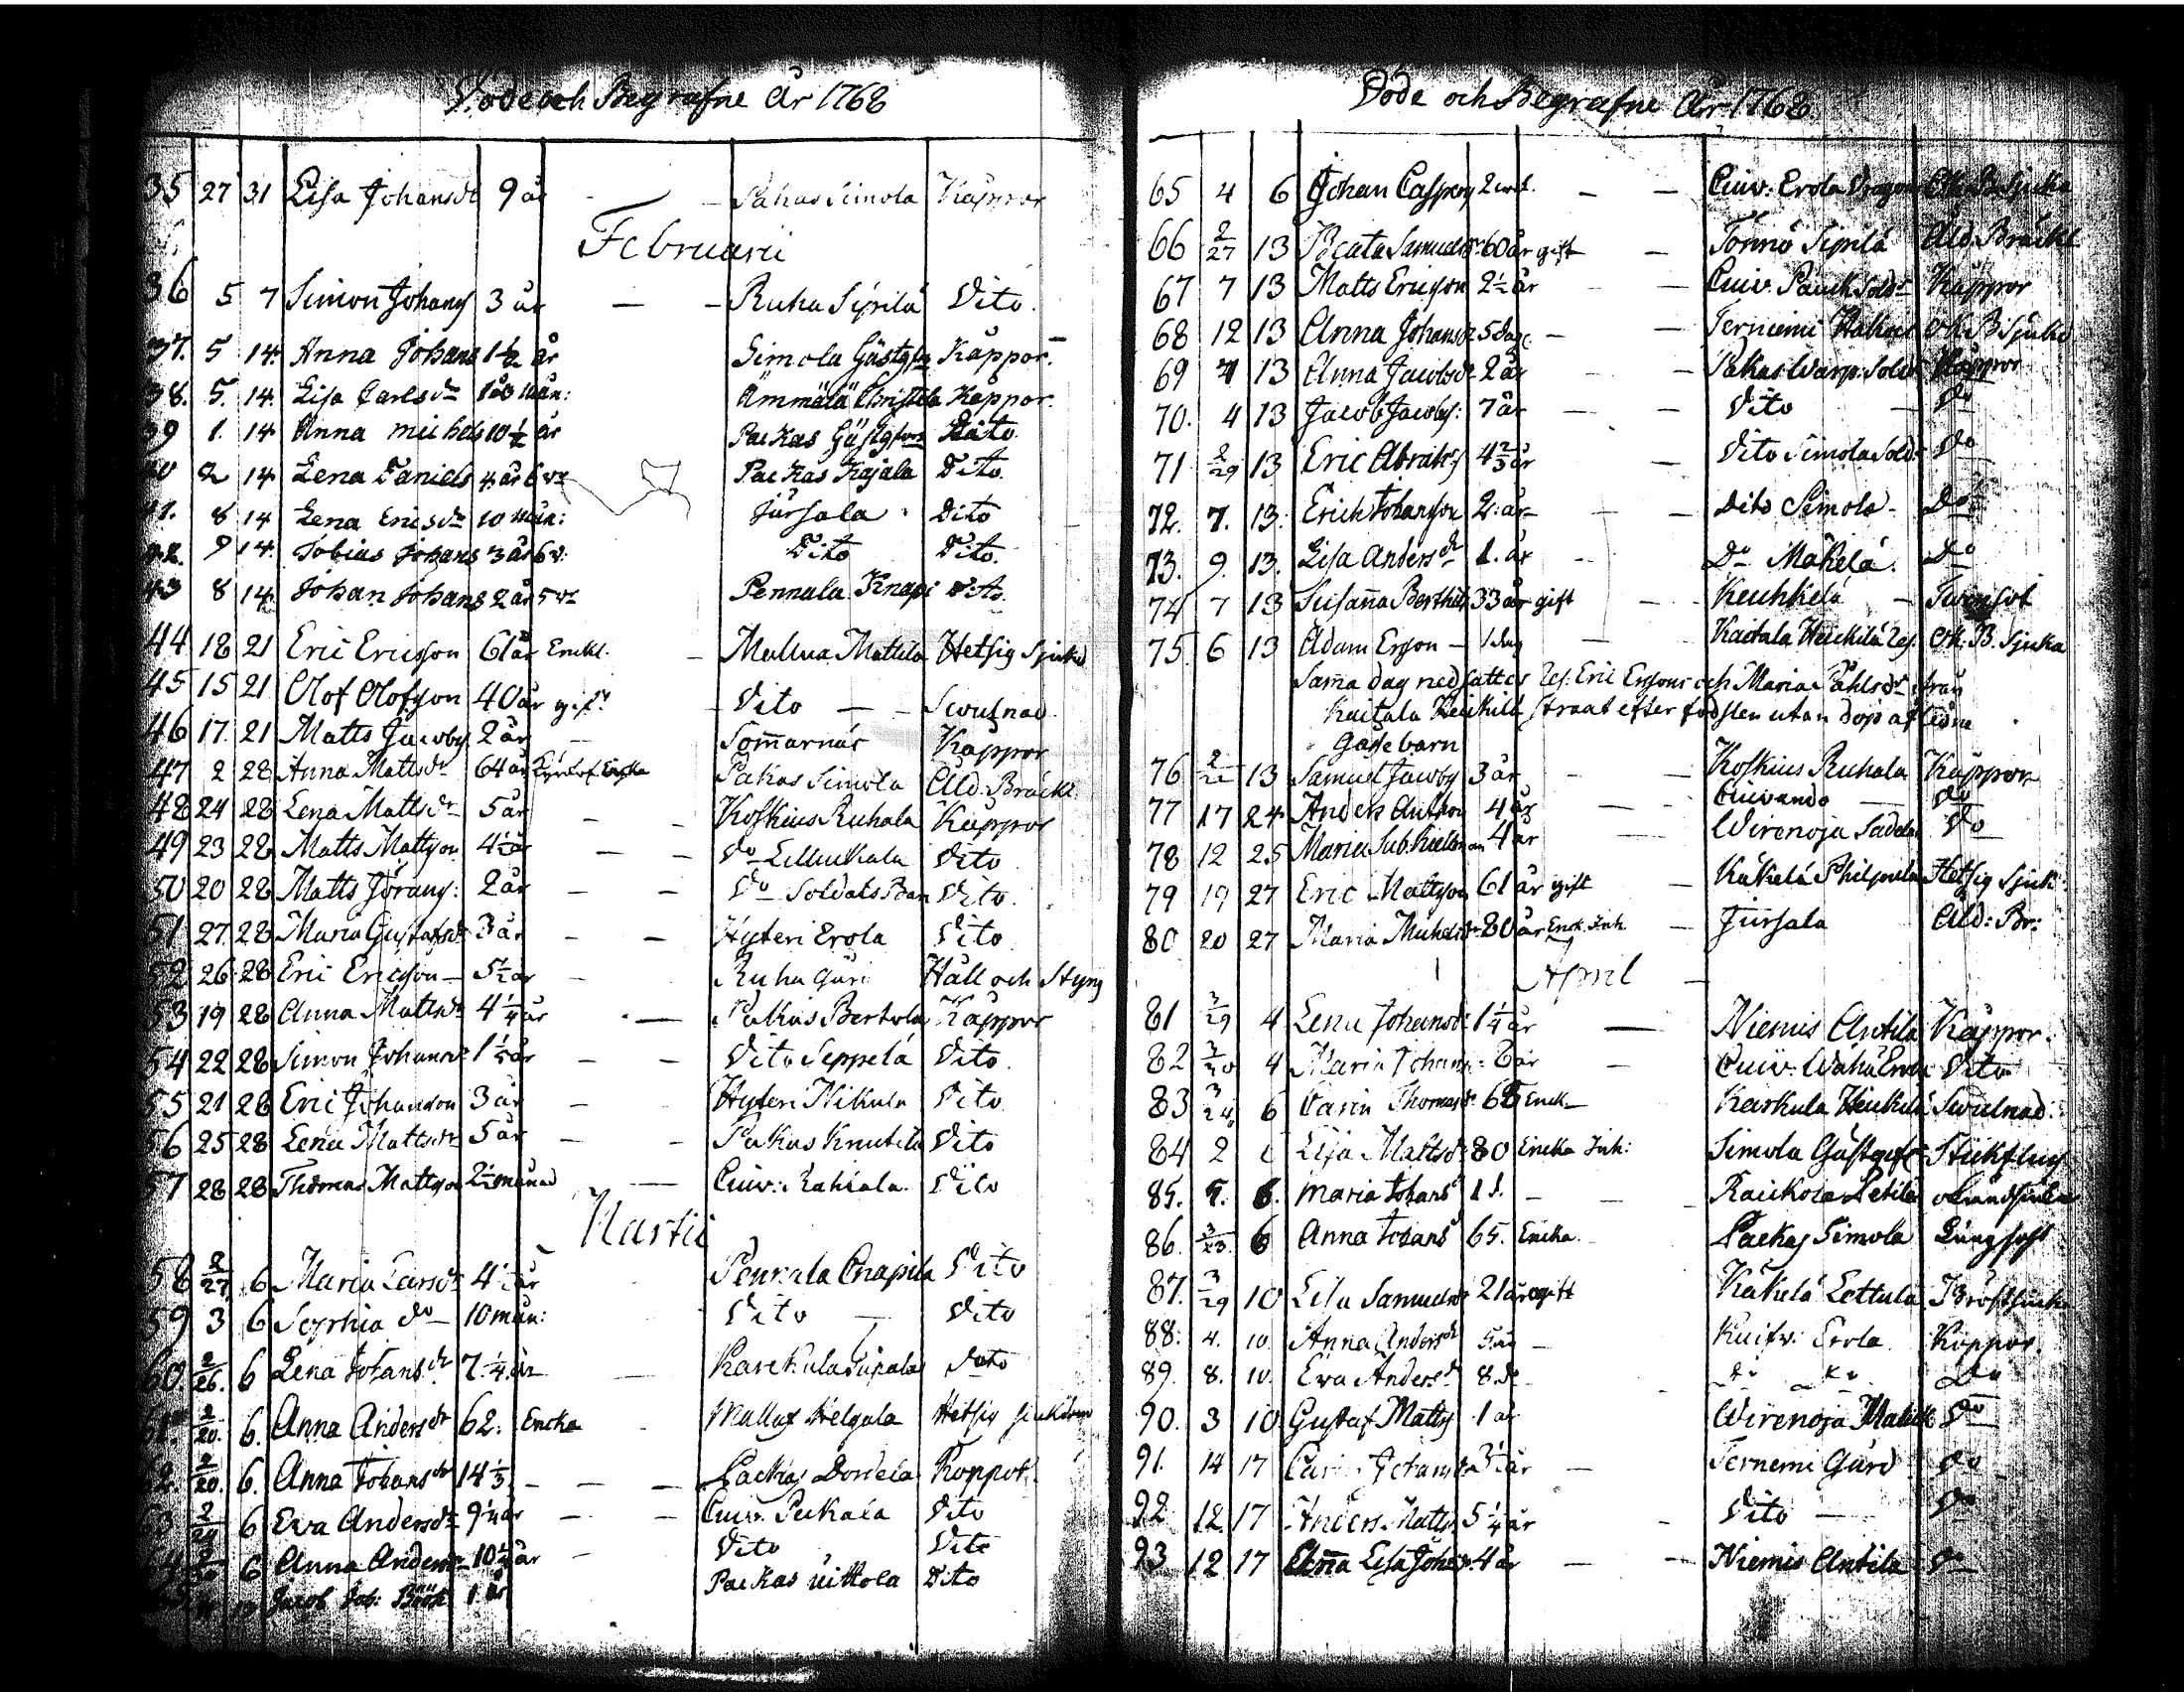 Döde och Begrafne År 1768
35 27 31 Lisa Johansdr 9 år — — Pakas Simola Kåppor
Februarii
36 5 7 Simon Johans 3 år — — Ruha Sipilä Dito
37. 5 14. Anna Johans 1½ år Simola Gästgfw Kåppor.
38. 5. 14. Lisa Carlsdr 1 år 3 mån: Ämmälä Christila Kåppor.
39 1. 14 Anna Michels 10½ år Packas Gästgfwr Dito.
40 2 14 Lena Daniels 4 år 6 v. Packas Kajala Dito.
41. 8 14 Lena Ericsdr 10 mån: Jursala Dito
42. 9 14. Tobias Johans 3 år 6 v: Dito Dito.
43 8 14. Johan Johans 2 år 5 v. Pennala Knapi Dito.
44 18 21 Eric Ericsson 61 år Enkl. — Mallua Mattila Hetsig Sjukd
45 15 21 Olof Olofson 40 år gift — Dito — Swulnad
46 17. 21 Matts Jacobs 2 år — Sommarnäs Kåppor
47 2 28 Anna Mattsdr 64 år Enka Pakas Simola Åld. Bräckl.
48 24 28 Lena Mattsdr 5 år — — Koskius Ruhala Kåppor
49 23 28 Matts Mattson 4½ år — — Do Lilluckala Dito
50 20 28 Matts Jörans: 2 år — — Do Soldats Barn Dito.
51 27. 28 Maria Gustafsdr 3 år — — Hyteri Erola Dito
52 26 28 Eric Ericsson — 5½ år — Ruha Gäri Håll och Styng
53 19 28 Anna Mattsdr 4¼ år — Pakas Bertola Kåppor
54 22 28 Simon Johanss 1¼ år — — Dito Seppelä Dito.
55 21 28 Eric Johansson 3 år — Hyteri Nikula Dito
56 25 28 Lena Mattsdr 5 år — — Pakas Knutila Dito
57 28 28 Thomas Mattson 2½ månad — Cuiv: Rahkala. Dito
Martii
58 2/27 6 Maria Larsdr 4½ år Pennala Cnapila Dito
59 3 6 Sophia do 10 mån: Dito — Dito
60. 2/26. 6 Lena Johansdr 7¼ år — Karekula Sipala Dito
61. 2/20. 6. Anna Andersdr 62. Encka Mallux Helgala Hetsig sjukdom
62. 2/20. 6. Anna Johansdr 14⅓ — — Packas Kopport
63 2/24 6 Eva Andersdr 9¼ år — — Cuiv. Peckala Dito
64 6 Anna Andersdr 10¼ år — Dito Dito
Jacob Joh: Böök 1 år Packas Uittola Dito
Döde och Begrafne År 1768.
65 4 6 Johan Caspers 2 wek. — — Cuiv: Erola Dragon Ok. B. Sjuka
66 2/27 13 Beata Samuelsdr 60 år gift — Tonnö Sipilä Åld. Bräckl
67 7 13 Matts Ericsson 2½ år — — Cuiv. Pauck Soldt Kåppor
68 12 13 Anna Johansdr 5 dag. — — Terniemi Ok. B. Sjukd
69 7 13 Anna Jacobsdr 2 år — Pakas Warp: Soldt Kåppor
70. 4 13 Jacob Jacobs: 7 år — — Dito — Do
71 2/29 13 Eric Abrahs 4⅔ år — Dito Simola Sold. Do
72. 7. 13. Erich Johansson 2. år — — Dito Simola — Do
73. 9. 13. Lisa Andersdr 1. år — Do Mäkelä. Do
74 7 13 Susanna Berthils 33 år gift — Keuhkelä — Twinsot
75. 6 13 Adam Ersson — 1 dag — Kaitala Heickilä Ok. B. Sjuka
Samma dag nedsattes Eric Erssons och Maria Påhlsdr ifrån
Kaitala Heickilä straxt efter födslen utan dop aflidne
Gåssebarn
76 2/22 13 Samuel Jacobs 3 år — — Koskius Ruhala Kåppor
77 17 24 Anders Anthon 4 år — Cuivando — Do
78 12 25 Maria 4 år — Wirenoja Sadela Do
79 19 27 Eric Mattson 61 år gift — Käkelä Philpula Hetsig Sjuk:
80 20 27 Maria Michelsdr 80 år Enck. Inh. — Jursala Åld: Br:
April
81 3/29 4 Lena Johansdr 1¼ år — Niemis Antila Kåppor.
82 3/30 4 Maria Johans: 8 år — Cuiv. Wähä Erola Dito
83 3/24 6 Carin Thomasdr 68 Enck — Karkula Heickilä Swulnad.
84 2 6 Lisa Mattsdr 80 Encka Inh: Simola Gästgif: Stickflug
85. 5. 6. Maria Johansd 1 d. — — Raukola Heikilä okändsiuka
86. 3/23. 6 Anna Johansd 65. Encka. Packas Simola Lungsoht
87. 3/29 10 Lisa Samuelsdr 21 år gift Käkelä Lettula Bröstsiuka
88. 4. 10. Anna Andersdr 5 år — Kuifv: Erola Koppor.
89. 8. 10. Eva Andersdr 8. do Do
90. 3 10 Gustaf Matts 1 år Wirenoja Do
91. 14 17 Carin Johansdr 3½ år — Ternemi Gård Do
92 12 17 Anders Matts 5¼ år — Dito — Do
93 12 17 Anna Lisa Johansdr 4 år — — Niemis Antila Do